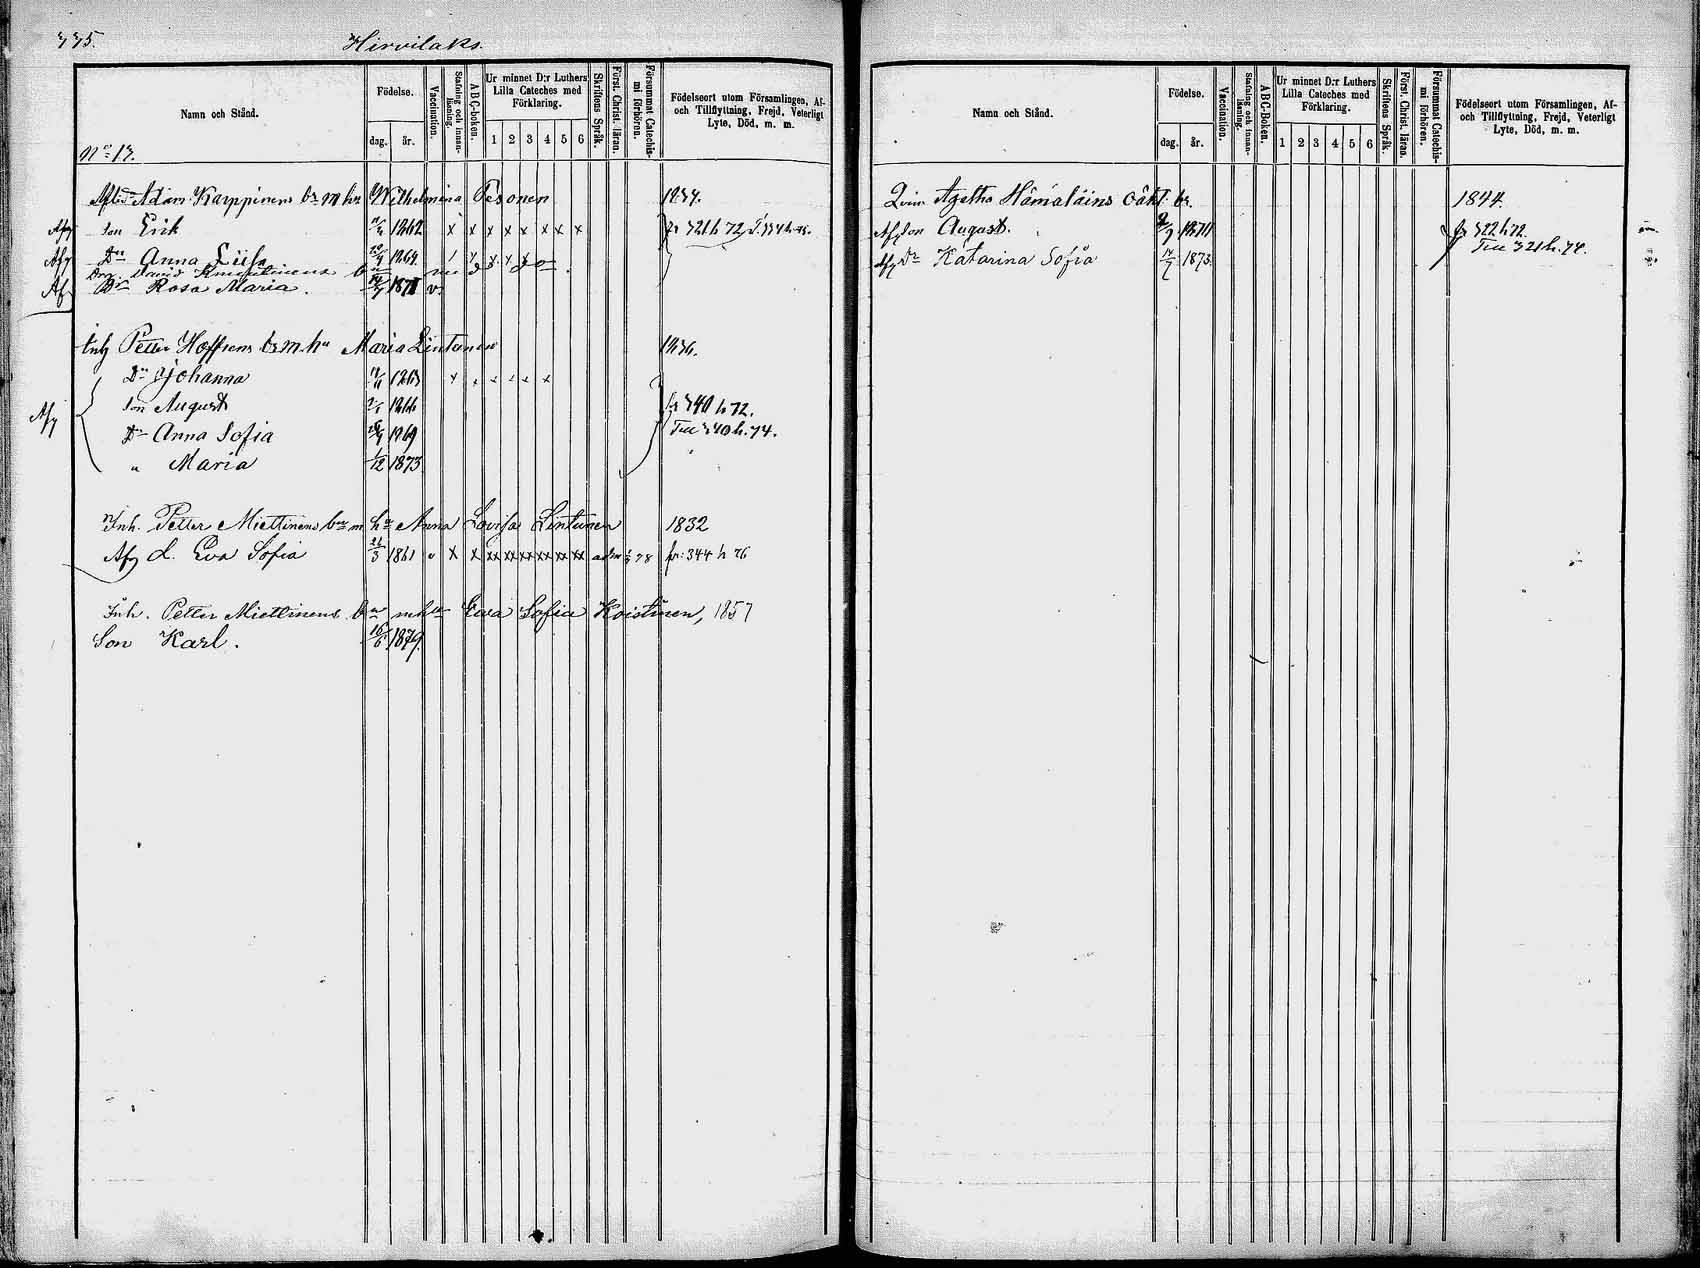 775.
Hirvilaks.
Namn och Stånd.
Födelse.
dag. år.
Vaccination.
Stafning och innanläsning.
ABC-Boken.
Ur minnet D:r Luthers Lilla Cateches med Förklaring.
1 2 3 4 5 6
Skriftens Språk.
Först. Christ. läran.
Försummat Catechismi förhören.
Födelseort utom Församlingen, Af- och Tillflyttning, Frejd, Veterligt Lyte, Död, m. m.
No 17.
Adam Karppinens Wilhelmina Pesonen
Afg Son Erik 1862 x x x x x x x x
Afg Dr Anna Liisa 1864
David
Af Dr Rosa Maria. 1871 v
Inh Petter Hoffrens br m. hu Maria Lintunen 1836.
Dr Johanna 1863
Afg Son August 1866 fr 340 h 72.
Dr Anna Sofia 1869 Till 340 h. 74.
" Maria 1/12 1873
Inh. Petter Miettinens br m hu Anna Lovisa Lintunen 1832
Afg d. Eva Sofia 21/3 1861 v x x xx xx xx xx xx xx adm 78 fr: 344 h 76
Inh. Petter Miettinens br m hu Eva Sofia Koistinen, 1857
Son Karl. 16/6 1879.
Namn och Stånd.
Födelse.
dag. år.
Vaccination.
Stafning och innanläsning.
ABC-Boken.
Ur minnet D:r Luthers Lilla Cateches med Förklaring.
1 2 3 4 5 6
Skriftens Språk.
Först. Christ. läran.
Försummat Catechismi förhören.
Födelseort utom Församlingen, Af- och Tillflyttning, Frejd, Veterligt Lyte, Död, m. m.
Agatha Hämäläins oäkt. br. 1844.
Afg Son August. 1871 fr 322 h 72.
Till 321 h. 74.
Afg Dr Katarina Sofia 17/7 1873.